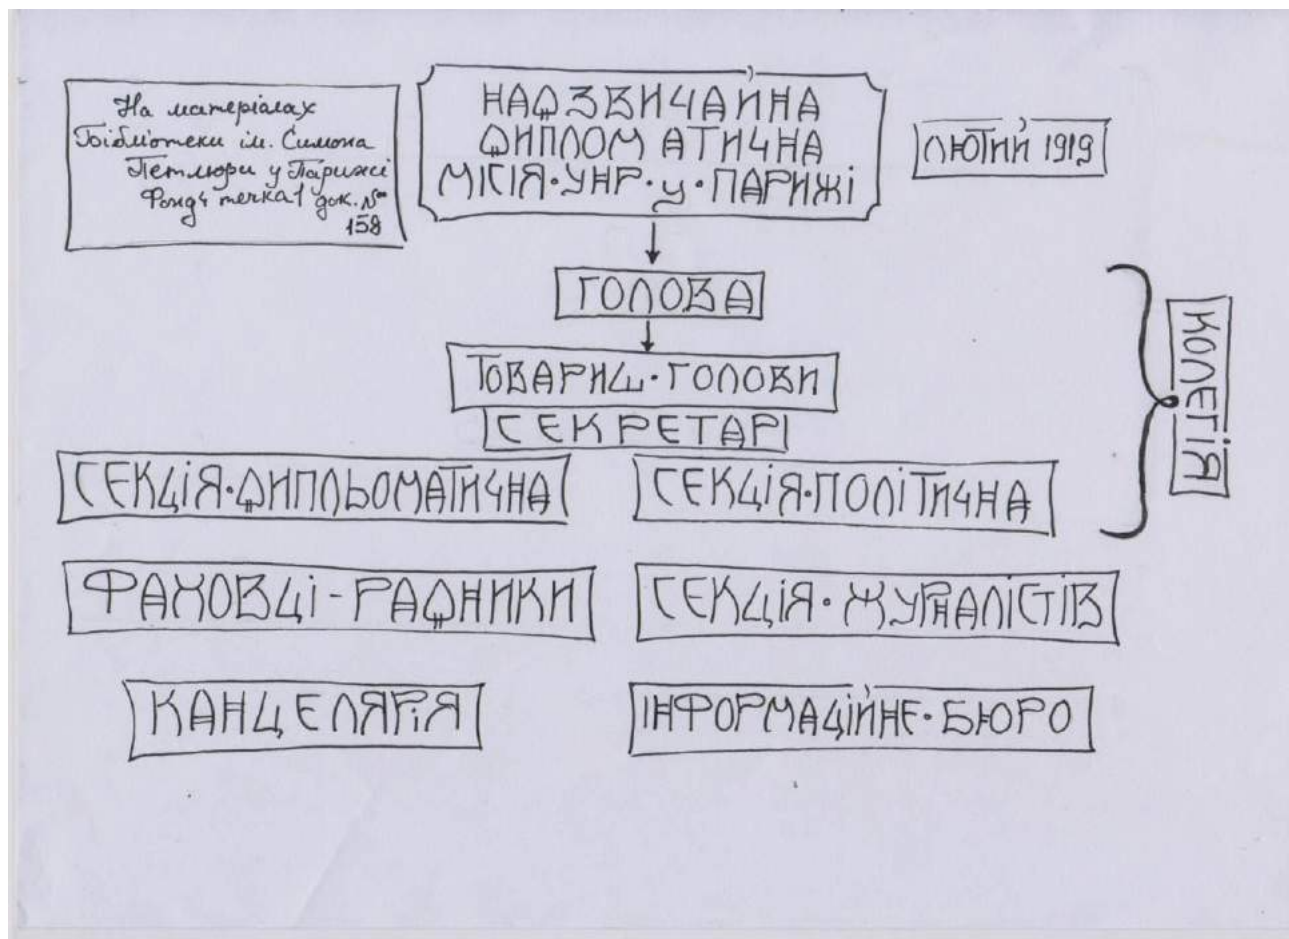 На матеріалах
Бібліотеки ім. Симона
Петлюри у Парижі
Фонд 4 течка 1 док. №
158
НАДЗВИЧАЙНА
ДИПЛОМАТИЧНА
МІСІЯ·УНР·у·ПАРИЖІ
ЛЮТИЙ 1919
ГОЛОВА
ТОВАРИШ·ГОЛОВИ
СЕКРЕТАРІ
СЕКЦІЯ·ДИПЛЬОМАТИЧНА
СЕКЦІЯ·ПОЛІТИЧНА
КОЛЕГІЯ
ФАХОВЦІ-РАДНИКИ
СЕКЦІЯ·ЖУРНАЛІСТІВ
КАНЦЕЛЯРІЯ
ІНФОРМАЦІЙНЕ·БЮРО